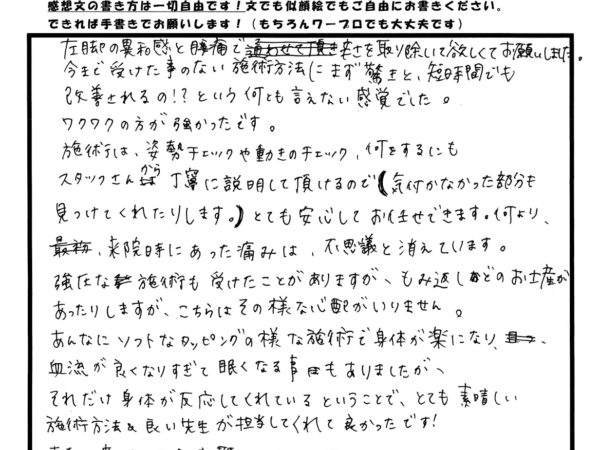 感想文の書き方は一切自由です！文でも似顔絵でもご自由にお書きください。
できれば手書きでお願いします！（もちろんワープロでも大丈夫です）
左脚の異和感と腰痛で を取り除いて欲しくてお願いしました。
今まで受けた事のない施術方法にまず驚きと、短時間でも
改善されるの!?という何とも言えない感覚でした。
ワクワクの方が強かったです。
施術は、姿勢チェックや動きのチェック、何をするにも
スタッフさんから丁寧に説明して頂けるので（気付かなかった部分も
見つけてくれたりします。）とても安心してお任せできます。何より、
来院時にあった痛みは、不思議と消えています。
強圧な施術も受けたことがありますが、もみ返しなどのお土産が
あったりしますが、こちらはその様な心配がいりません。
あんなにソフトなタッピングの様な施術で身体が楽になり、
血流が良くなりすぎて眠くなる事もありましたが、
それだけ身体が反応してくれているということで、とても素晴しい
施術方法&良い先生が担当してくれて良かったです!